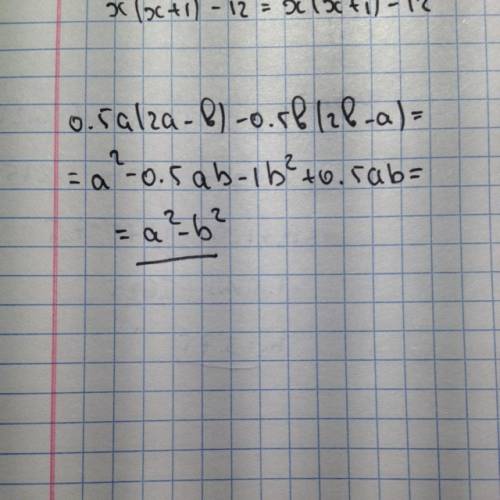 x(x+1)-12=x(x+1)-12
0.5a(2a-b)-0.5b(2b-a)=
=a²-0.5ab-1b²+0.5ab=
=a²-b²